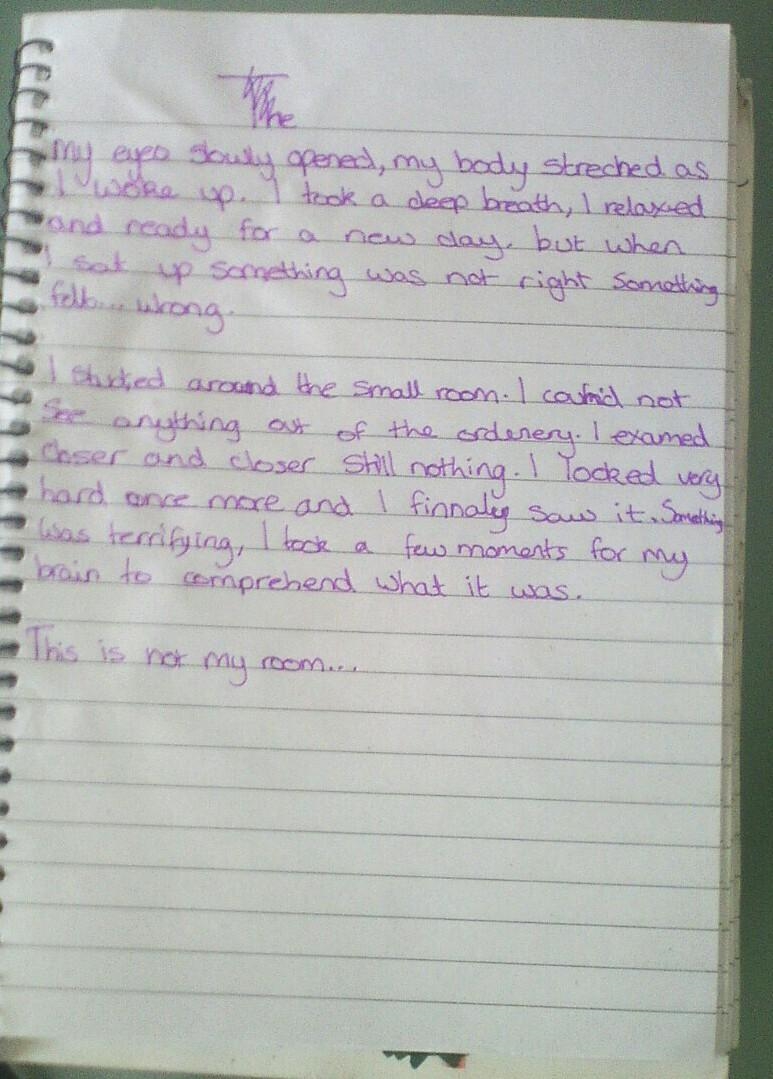 The
My eyes slowly opened, my body streched as
I woke up. I took a deep breath, I relaxed
and ready for a new day. but when
I sat up something was not right something
felt... wrong.
I studied around the small room. I could not
see anything out of the ordenery. I examed
closer and closer still nothing. I looked very
hard once more and I finnaley saw it. Something
was terrifying, I took a few moments for my
brain to comprehend what it was.
This is not my room...